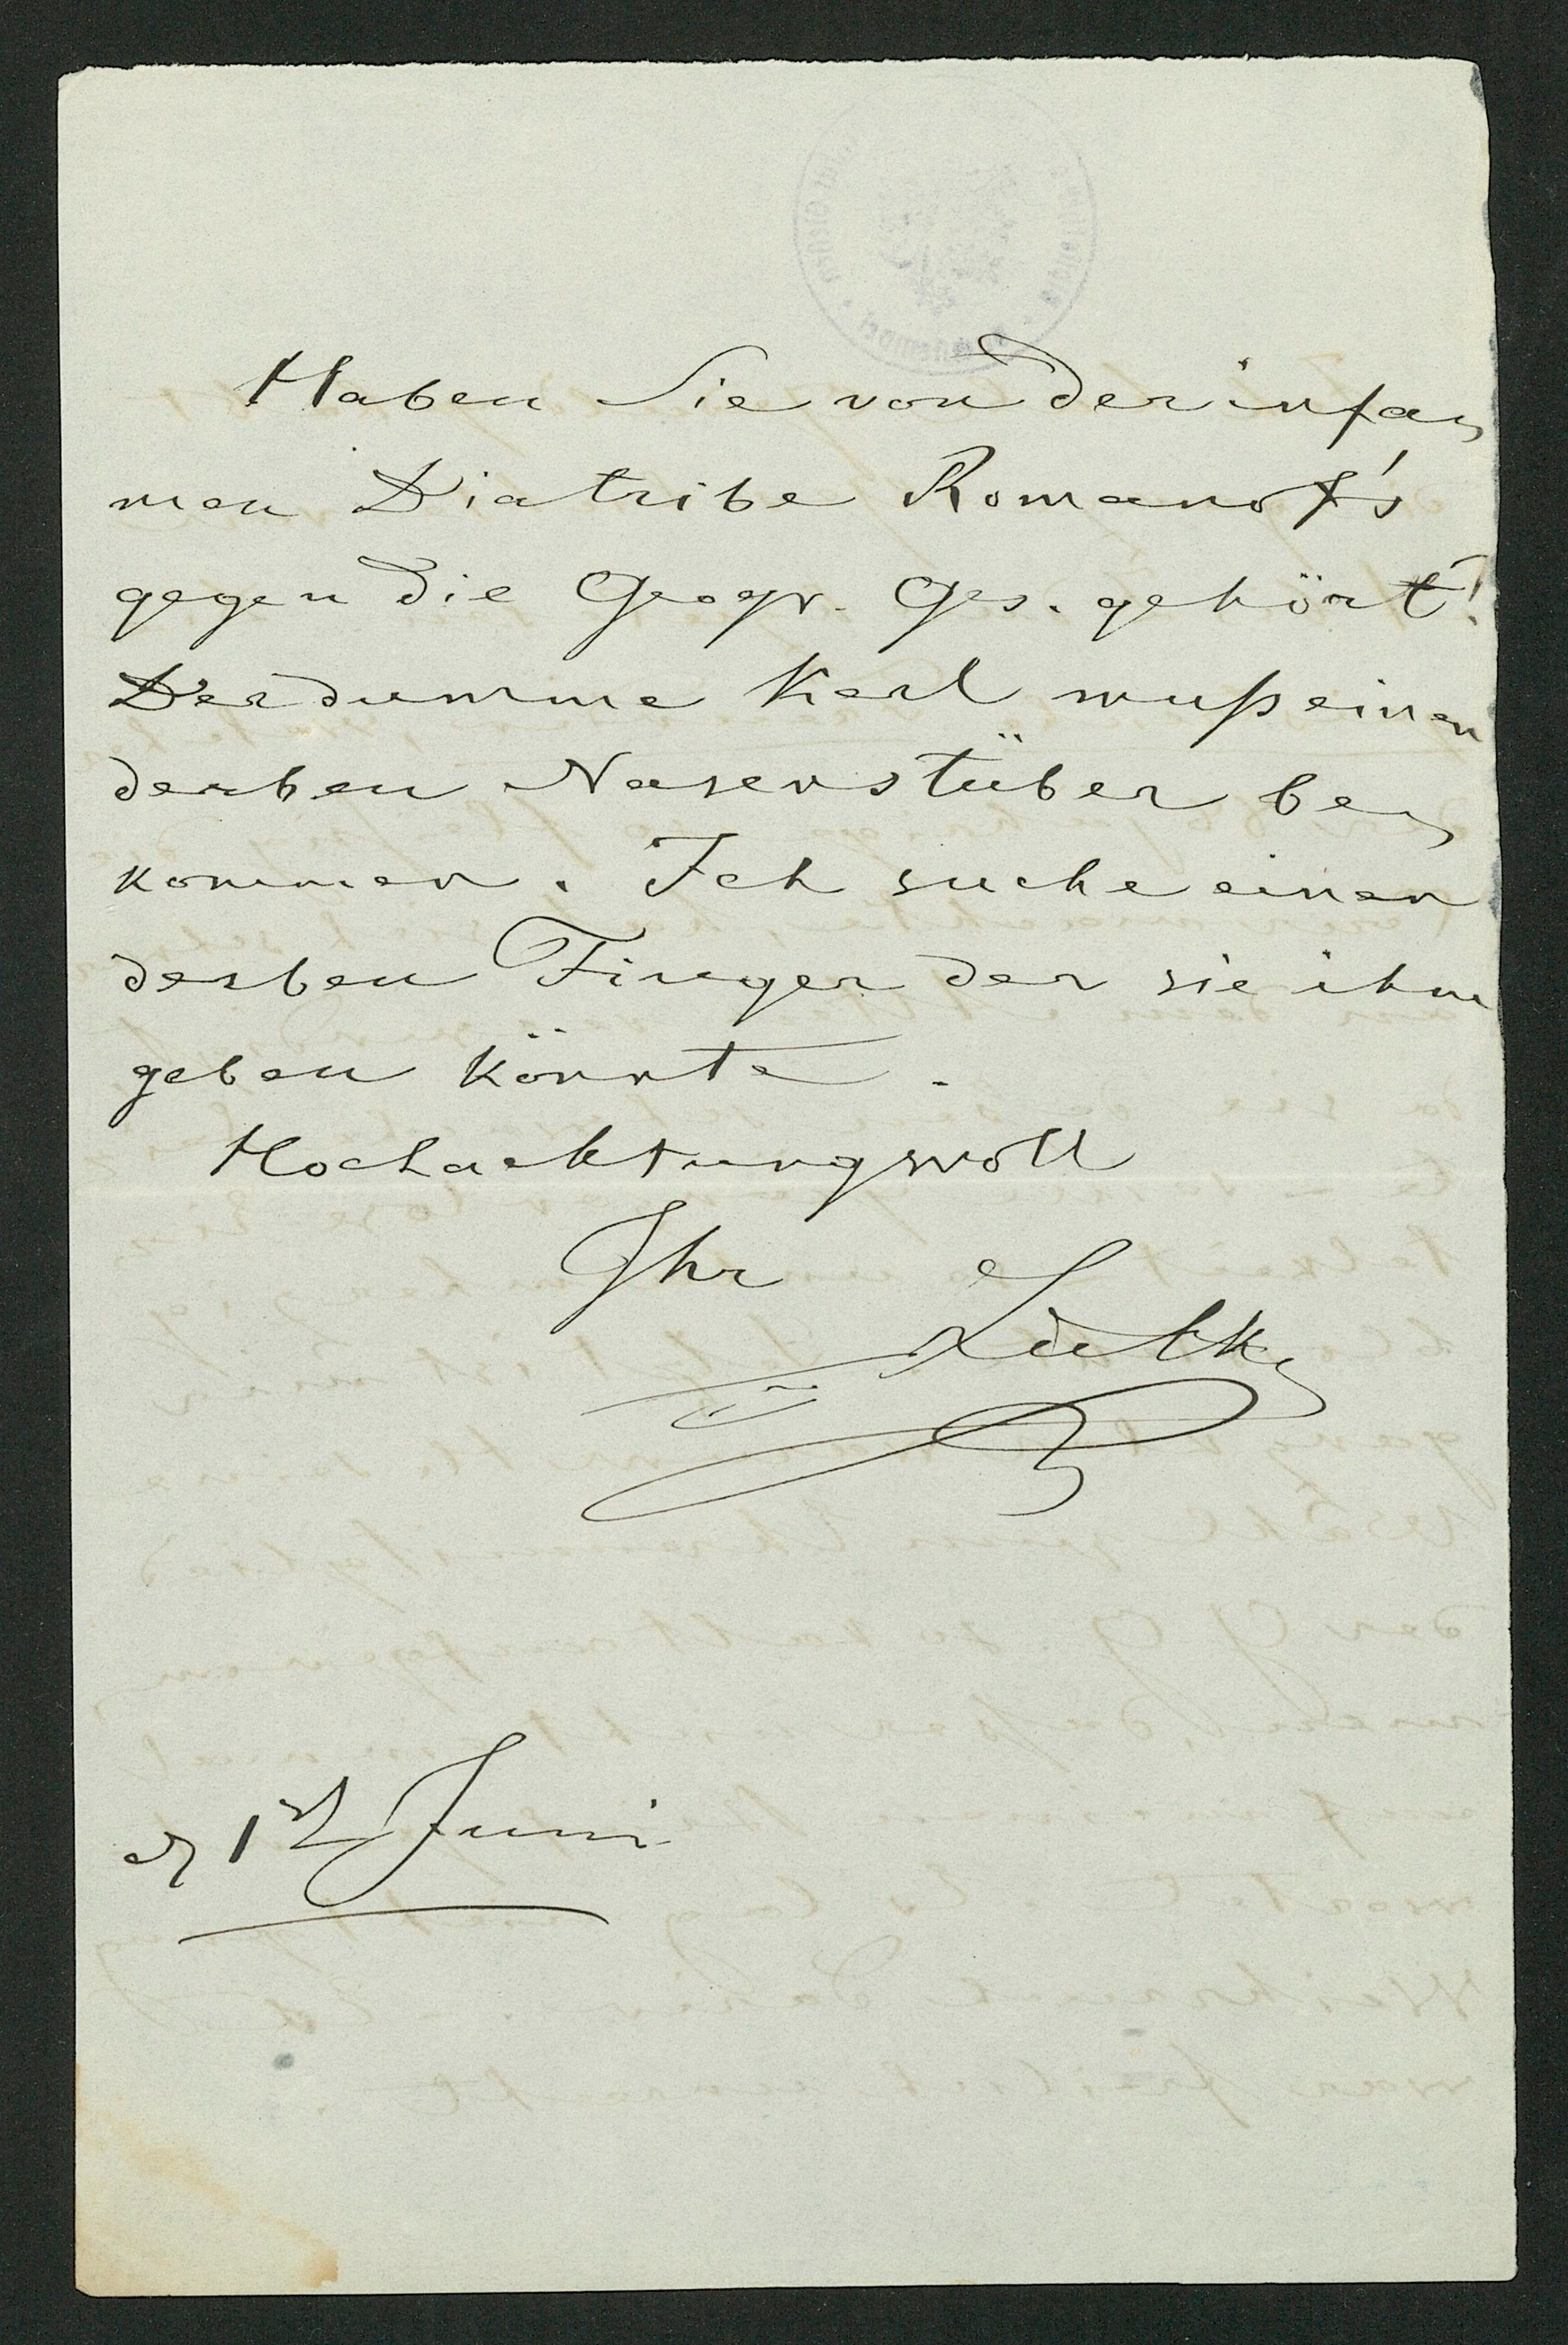 Haben Sie von der infa-
men Diatribe Romanof's
gegen die Geogr. Ges. gehört!
Der dumme Kerl muß einen
derben Nasenstüber be-
kommen. Ich suche einen
derben Finger der sie ihm
geben könnte.
Hochachtungsvoll
Ihr Lütke
1st Juni